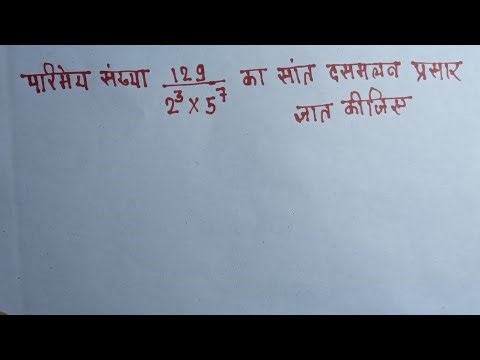 परिमेय संख्या 129/2³ × 5⁷ का सांत दसमलव प्रसार
ज्ञात कीजिए